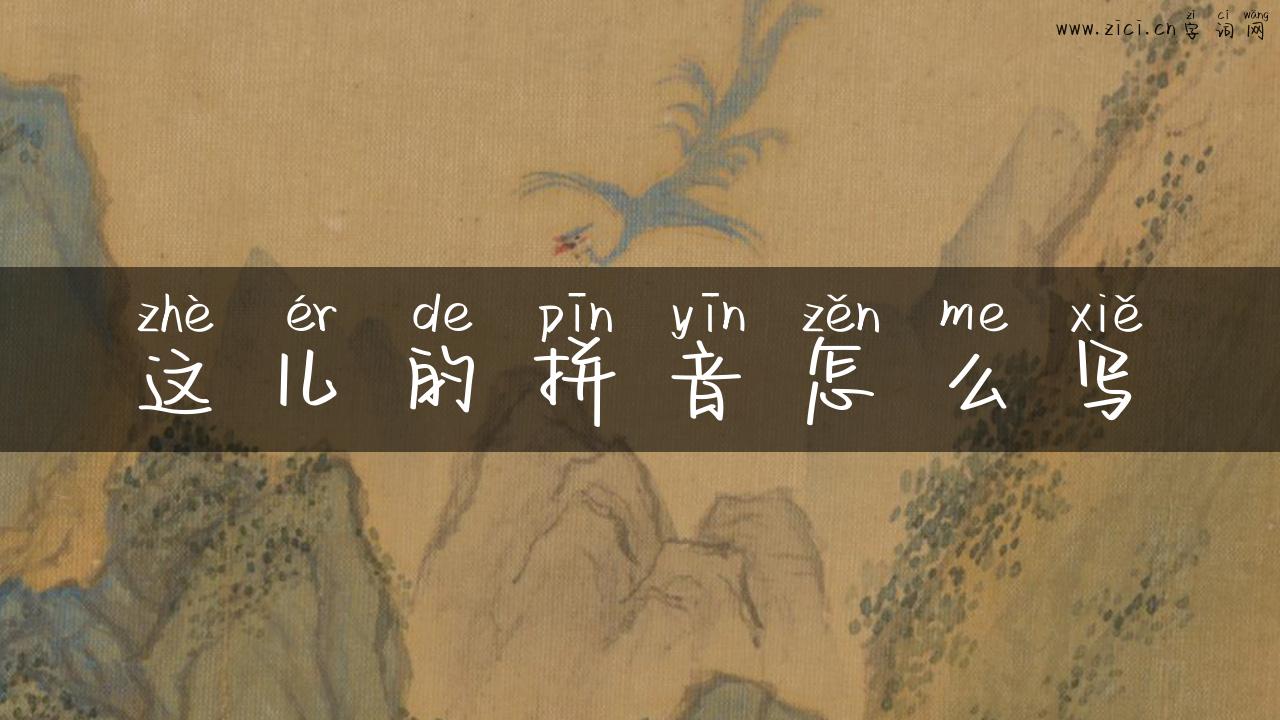 zì cí wǎng
www.zici.cn字词网
zhè ér de pīn yīn zěn me xiě
这儿的拼音怎么写